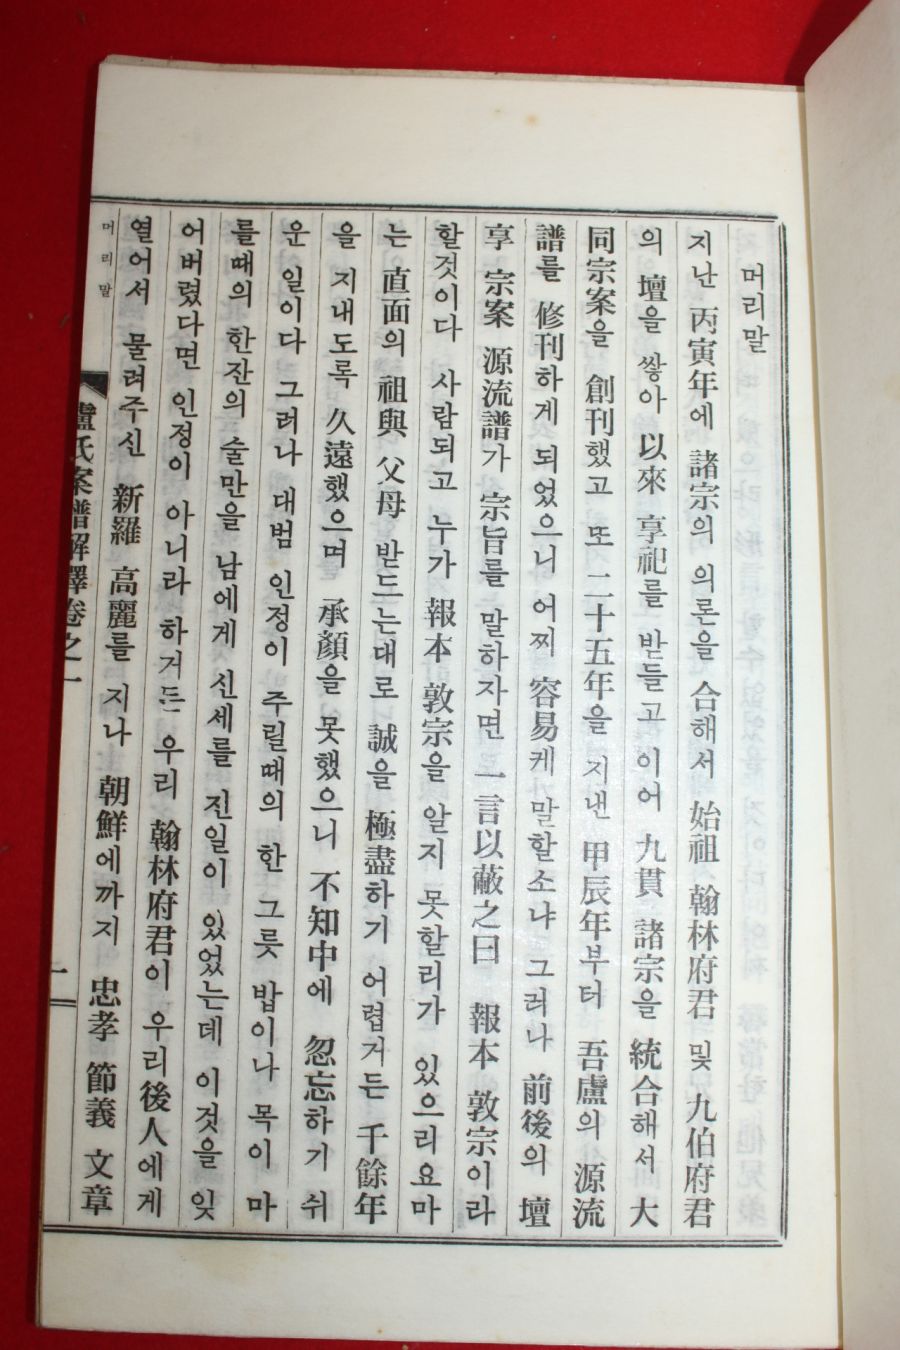 머리말
지난 丙寅年에 諸宗의 의론을 合해서 始祖 翰林府君 및 九伯府君
의 壇을 쌓아 以來 享祀를 받들고 이어 九貫 諸宗을 統合해서 大
同宗案을 創刊했고 또 二十五年을 지낸 甲辰年부터 吾盧의 源流
譜를 修刊하게 되었으니 어찌 容易케 말할소냐 그러나 前後의 壇
享 宗案 源流譜가 宗旨를 말하자면 一言以蔽之曰 報本 敦宗이라
할것이다 사람되고 누가 報本 敦宗을 알지 못할리가 있으리요마
는 直面의 祖與 父母 받드는대로 誠을 極盡하기 어렵거든 千餘年
을 지내도록 久遠했으며 承顏을 못했으니 不知中에 忽忘하기 쉬
운 일이다 그러나 대범 인정이 주릴때의 한 그릇 밥이나 목이 마
를때의 한잔의 술만을 남에게 신세를 진일이 있었는데 이것을 잊
어버렸다면 인정이 아니라 하거든 우리 翰林府君이 우리 後人에게
열어서 물려주신 新羅 高麗를 지나 朝鮮에까지 忠孝 節義 文章
머리말
盧氏案譜解釋卷之一
一